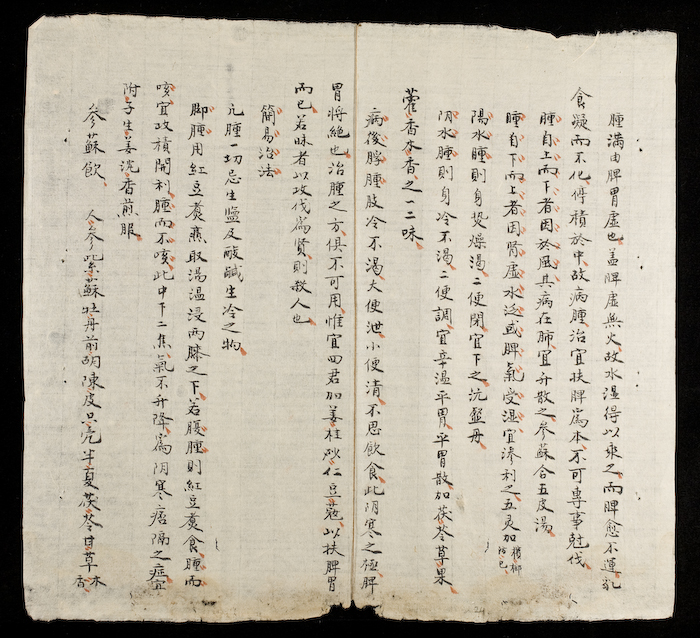 腫滿由脾胃虛也盖脾虛無火故水湿得以乘之而脾愈不運乳
食凝而不化停積於中故病腫治宜扶脾爲本不可專事尅伐
腫自上而下者因於風其病在肺宜升散之参蘇合五皮湯
腫自下而上者因腎虛水泛或脾氣受湿宜滲利之五灵加檳榔防已
陽水腫則身熱燥渴二便閉宜下之沉
阴水腫則身冷不渴二便調宜辛温平胃平胃散加茯苓草果
藿香木香之一二味
病後腫肢冷不渴大便泄小便清不思飲食此阴寒之極脾
胃將絶也治腫之方俱不可用惟宜四君加姜桂砂仁豆蔻以扶脾胃
而已若昧者以攻伐爲賢則殺人也
簡易治法
凢腫一切忌生盐及酸鹹生冷之物
脚腫用紅豆煑熟取湯温浸两膝之下若腹腫則紅豆煑食腫而
咳宜攻積開利腫而不咳此中下二焦氣不升降爲阴寒痞隔之症宜
附子生姜沉香煎服
参蘇飲 人参紫蘇牡丹前胡陳皮只壳半夏茯苓甘草木香